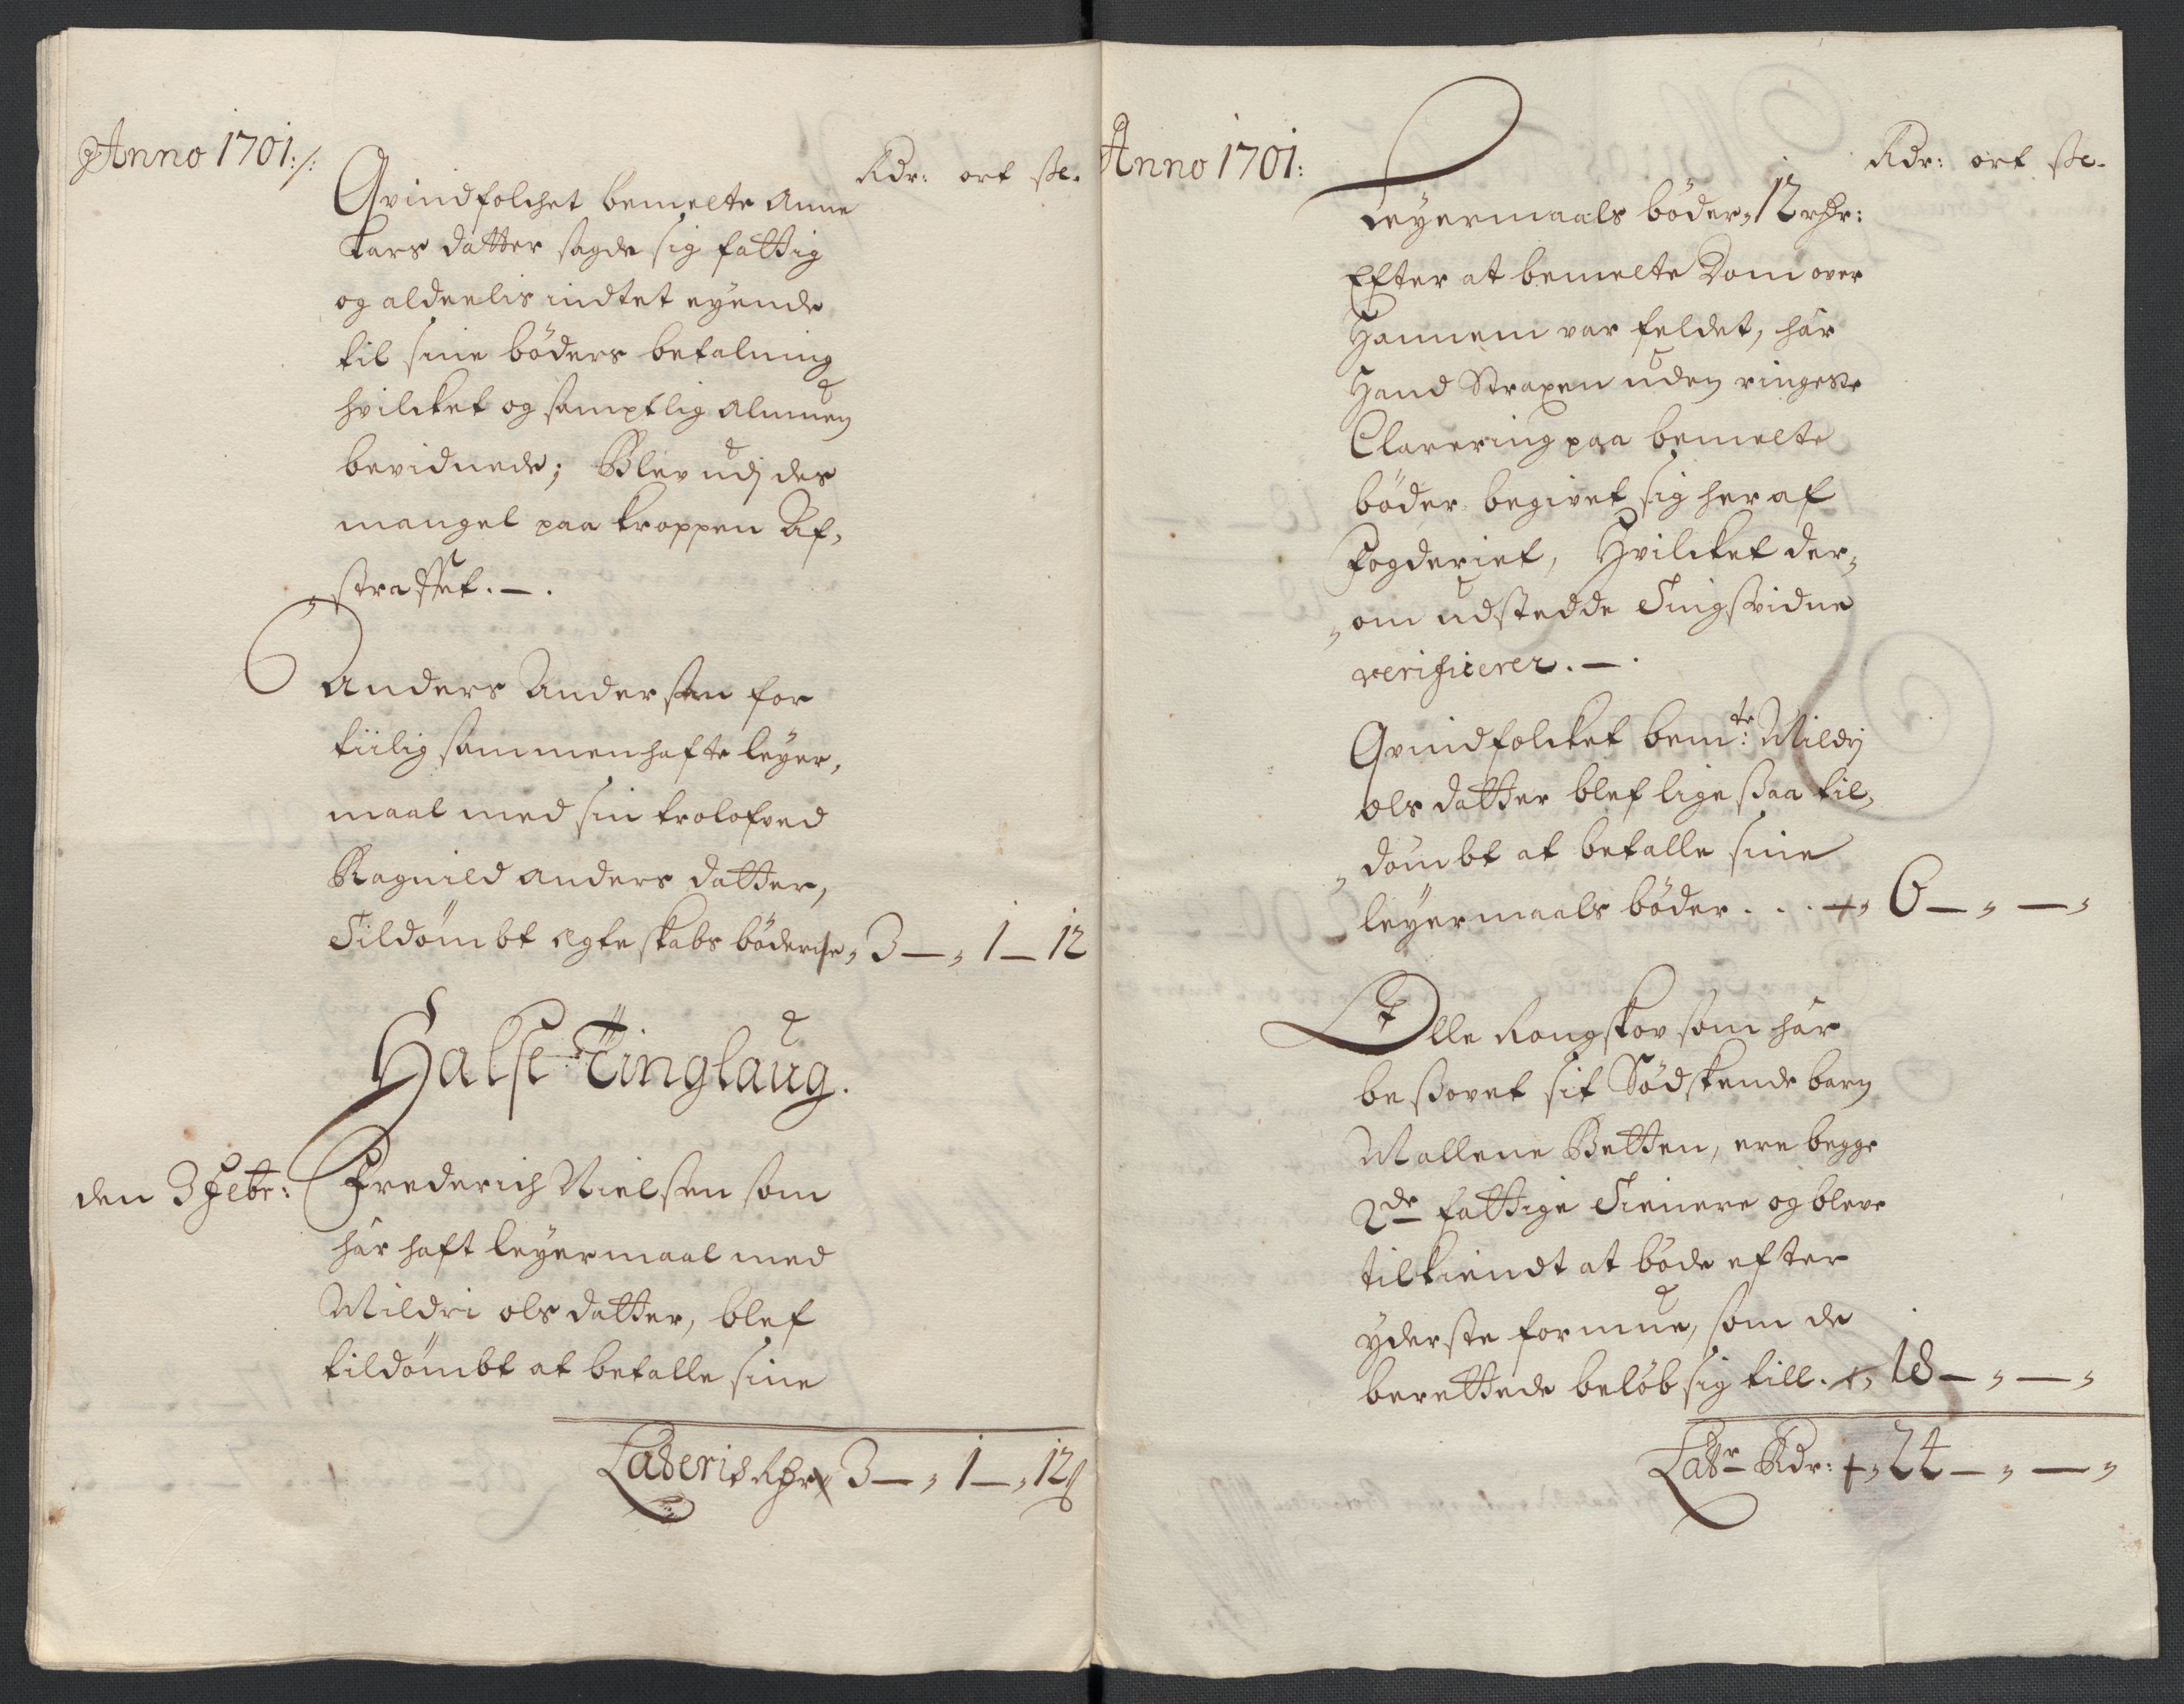 Anno 1701:/:
Rdr: ort sk.
Qvindfolchet bemelte Anne
Lars datter sagde sig fattig
og aldeelis indtet eyende
til sine böders betalning
hvilcket og samptlig almuen
bevidnede; Blev udj des
mangel paa kroppen Af,
„straffet. — .
Anders Andersen for
tiilig sammenhafte leyer,
maal med sin trolofved
Ragnild Anders datter,
Tildömbt Egteskabs böderne „ 3 — „ 1 — 12
Halse Tinglaug.
den 3 Febr: Frederich Nielsen som
hår haft leyermaal med
Mildri ols datter, blef
tildömbt at betalle sine
Lateris Rdr 3 — „ 1 — „ 12 ß
Anno 1701:
Rdr: ort sk.
Leyermaals böder „ 12 rdr:
Efter at bemelte Dom over
Hannem var feldet, hår
Hand Straxen uden ringeste
Clarering paa bemelte
böder begivet sig her af
Fogderiet, Hvilcket der,
„om udstedde Tingsvidne
verificerer. — .
Qvindfolcket bemte: Mildrj
ols datter blef lige saa til,
„dömbt at betalle sine
leyermaals böder . . . „ 6 — „ — „
Olle Rongskov som hår
besovet sit Södskende barn
Mallene Betten, ere begge
2de fattige Tienere og bleve
tilkiendt at böde efter
yderste formue, som de
berettede belöb sig till. „ 18 — „ — „
Latr Rdr: „ 24 — „ — „